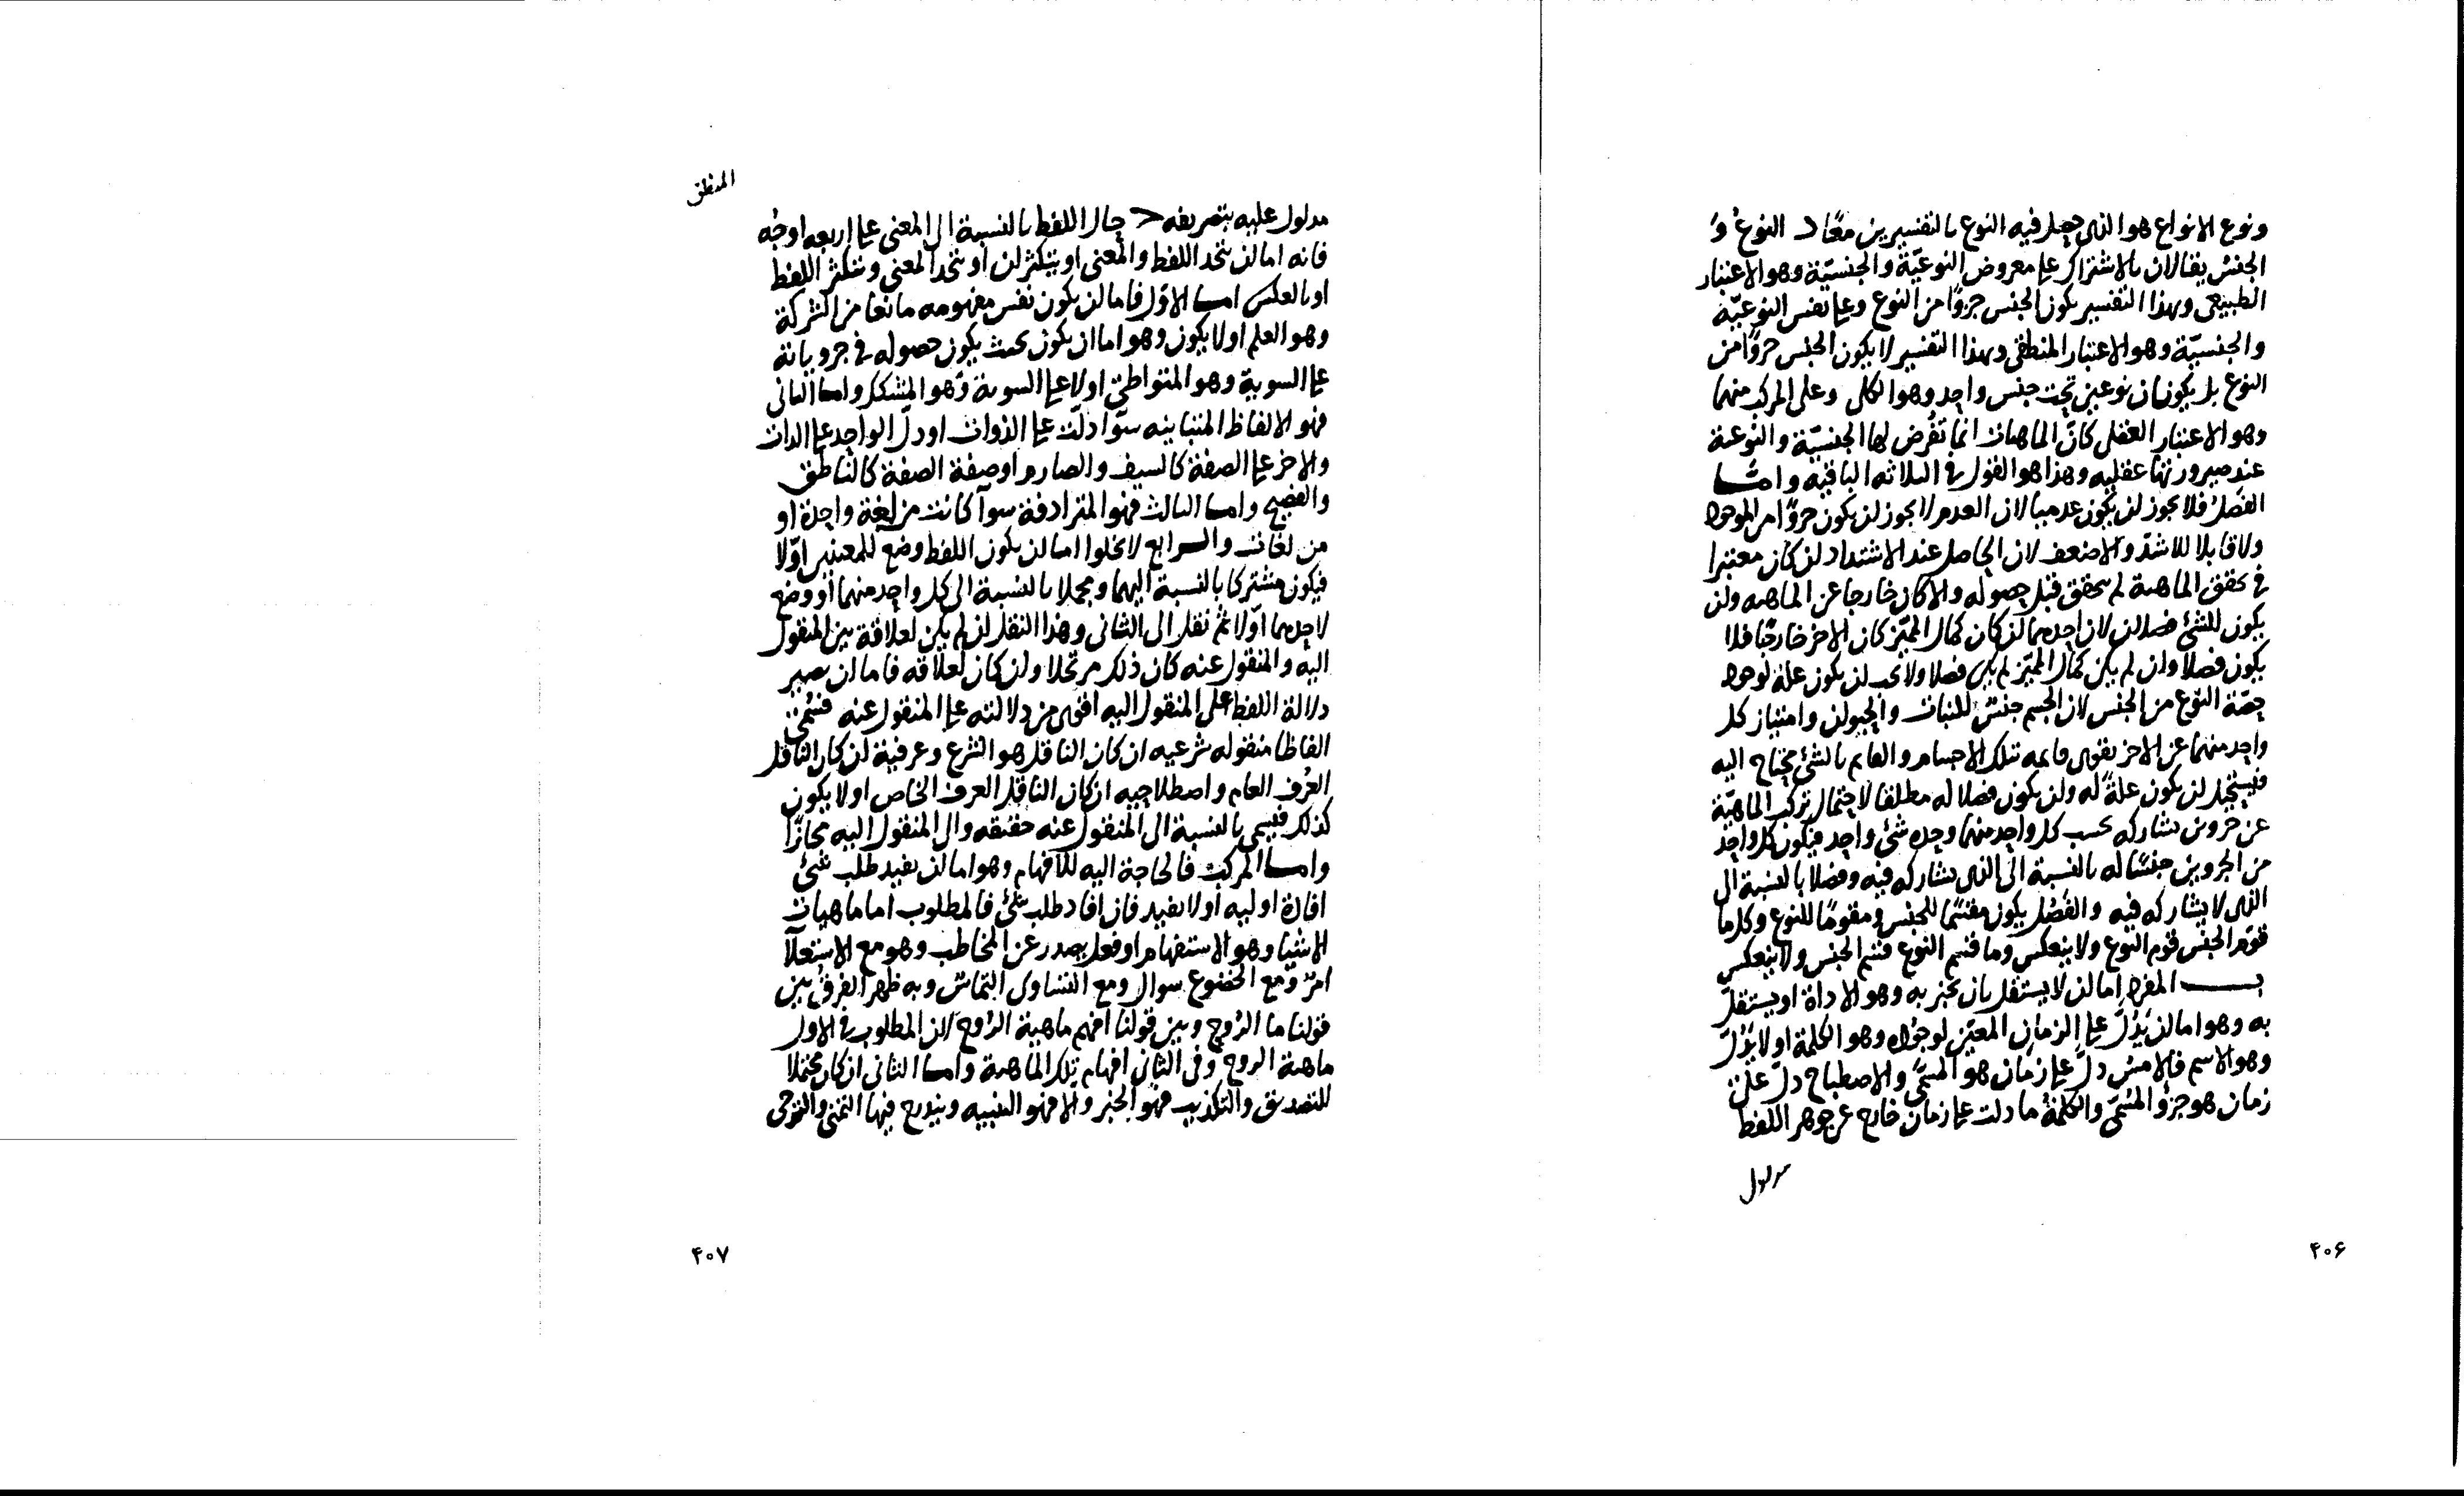 ونوع الانواع هو الذى يعتبر فيه النوع بالتفسيرين معًا د النوع و
الجنس يقالان بالاشتراك على معروض النوعيّة والجنسيّة وهو الاعتبار
الطبيعى وبهذا التفسير يكون الجنس جزوًا من النوع وعلى نفس النوعيّة
والجنسيّة وهو الاعتبار المنطقى وبهذا التفسير لا يكون الجنس جزوًا من
النوع بل يكونان نوعين تحت جنس واحد وهو الكلى وعلى المركب منهما
وهو الاعتبار العقلى كانّ الماهيات انما تعرض لها الجنسيّة والنوعية
عند صيرورتها عقليه وهذا هو القول فى الثلاثه الباقيه وامّا
الفصل فلا يجوز ان يكون عدميا لان العدم لا يجوز ان يكون جزوًا من الموجود
ولا قابلا للاشدّ والاضعف لان الحاصل عند الاشتداد ان كان معتبرا
فى تحقق الماهية لم يتحقق قبل حصوله والا كان خارجا عن الماهيه ولن
يكون للشئ فصلان لان احدهما ان كان كمال المميّز كان الاخر خارجًا فلا
يكون فصلا وان لم يكن كمال المميّز لم يكن فصلا ولا يجب ان يكون علة لوجود
حصّة النوع من الجنس لان الجسم جنسٌ للنبات والحيوان وامتياز كل
واحد منهما عن الاخر بقوى قايمه بتلك الاجسام والقايم بالشئ يحتاج اليه
فيستحيل ان يكون علةً له ولن يكون فصلا له مطلقا لاحتمال تركب الماهيّة
عن جزوين يشاركه بحسب كل واحد منهما وحده شئ واحد فيكون كل واحد
من الجزوين جنسًا له بالنسبة الى الذى يشاركه فيه وفصلا بالنسبة الى
الذى لا يشاركه فيه والفصل يكون مقسّما للجنس ومقومًا للنوع وكل ما
قوّم الجنس قوم النوع ولا ينعكس وما قسم النوع قسم الجنس ولا ينعكس
ب المفرد اما ان لا يستقل بان يخبر به وهو الاداة او يستقلّ
به وهو اما ان يدُلّ على الزمان المعيّن لوجوده وهو الكلمة او لا يدُلّ
وهو الاسم فالامس دلّ على زمان هو المسمّى والاصطباح دلّ على
زمان هو جزؤ المسمّى والكلمة ما دلت على زمان خارج عن جوهر اللفظ
مدلول
۴۰۶
المنطق
مدلول عليه بتصريفه حال اللفظ بالنسبة الى المعنى على اربعه اوجُه
فانه اما ان يتحد اللفظ والمعنى او يتكثران او يتحد المعنى ويتكثر اللفظ
او بالعكس اما الاوّل فاما ان يكون نفس مفهومه مانعا من الشركة
وهو العلم او لا يكون وهو اما ان يكون بحيث يكون حصوله فى جزوياته
على السوية وهو المتواطئ او لا على السوية وهو المشكك واما الثانى
فهو الالفاظ المتباينه سوآ دلّت على الذوات او دلّ الواحد على الذات
والاخر على الصفة كالسيف والصارم او صفة الصفة كالناطق
والفصيح واما الثالث فهو المترادفة سوآ كانت من لغة واحدة او
من لغات والرابع لا يخلوا اما ان يكون اللفظ وضع للمعنيين اوّلا
فيكون مشتركا بالنسبة اليهما ومجملا بالنسبة الى كل واحد منهما او وضع
لاحدهما اوّلا ثمّ نقل الى الثانى وهذا النقل ان لم يكن لعلاقة بين المنقول
اليه والمنقول عنه كان ذلك مرتجلا ولن كان لعلاقه فاما ان يصير
دلالة اللفظ على المنقول اليه اقوى من دلالته على المنقول عنه فتسمّى
الفاظا منقوله شرعيه ان كان الناقل هو الشرع وعرفية ان كان الناقل
العُرف العام واصطلاحيه ان كان الناقل العرف الخاص او لا يكون
كذلك فيسمى بالنسبة الى المنقول عنه حقيقه والى المنقول اليه مجازًا
واما المركب فالحاجة اليه للافهام وهو اما ان يفيد طلب شئ
افادة اوليه او لا يفيد فان افاد طلب شئ فالمطلوب اما ماهيات
الاشيا وهو الاستفهام او فعل يصدر عن المخاطب وهو مع الاستعلآ
امرٌ ومع الخضوع سوال ومع التساوى التماسٌ وبه ظهر الفرق بين
قولنا ما الرُوح وبين قولنا افهم ماهية الرُوح لان المطلوب فى الاول
ماهية الروح وفى الثانى افهام تلك الماهية واما الثانى ان كان محتملا
للتصديق والتكذيب فهو الخبر والا فهو التنبيه ويندرج فيها التمنى والترجى
۴۰۷